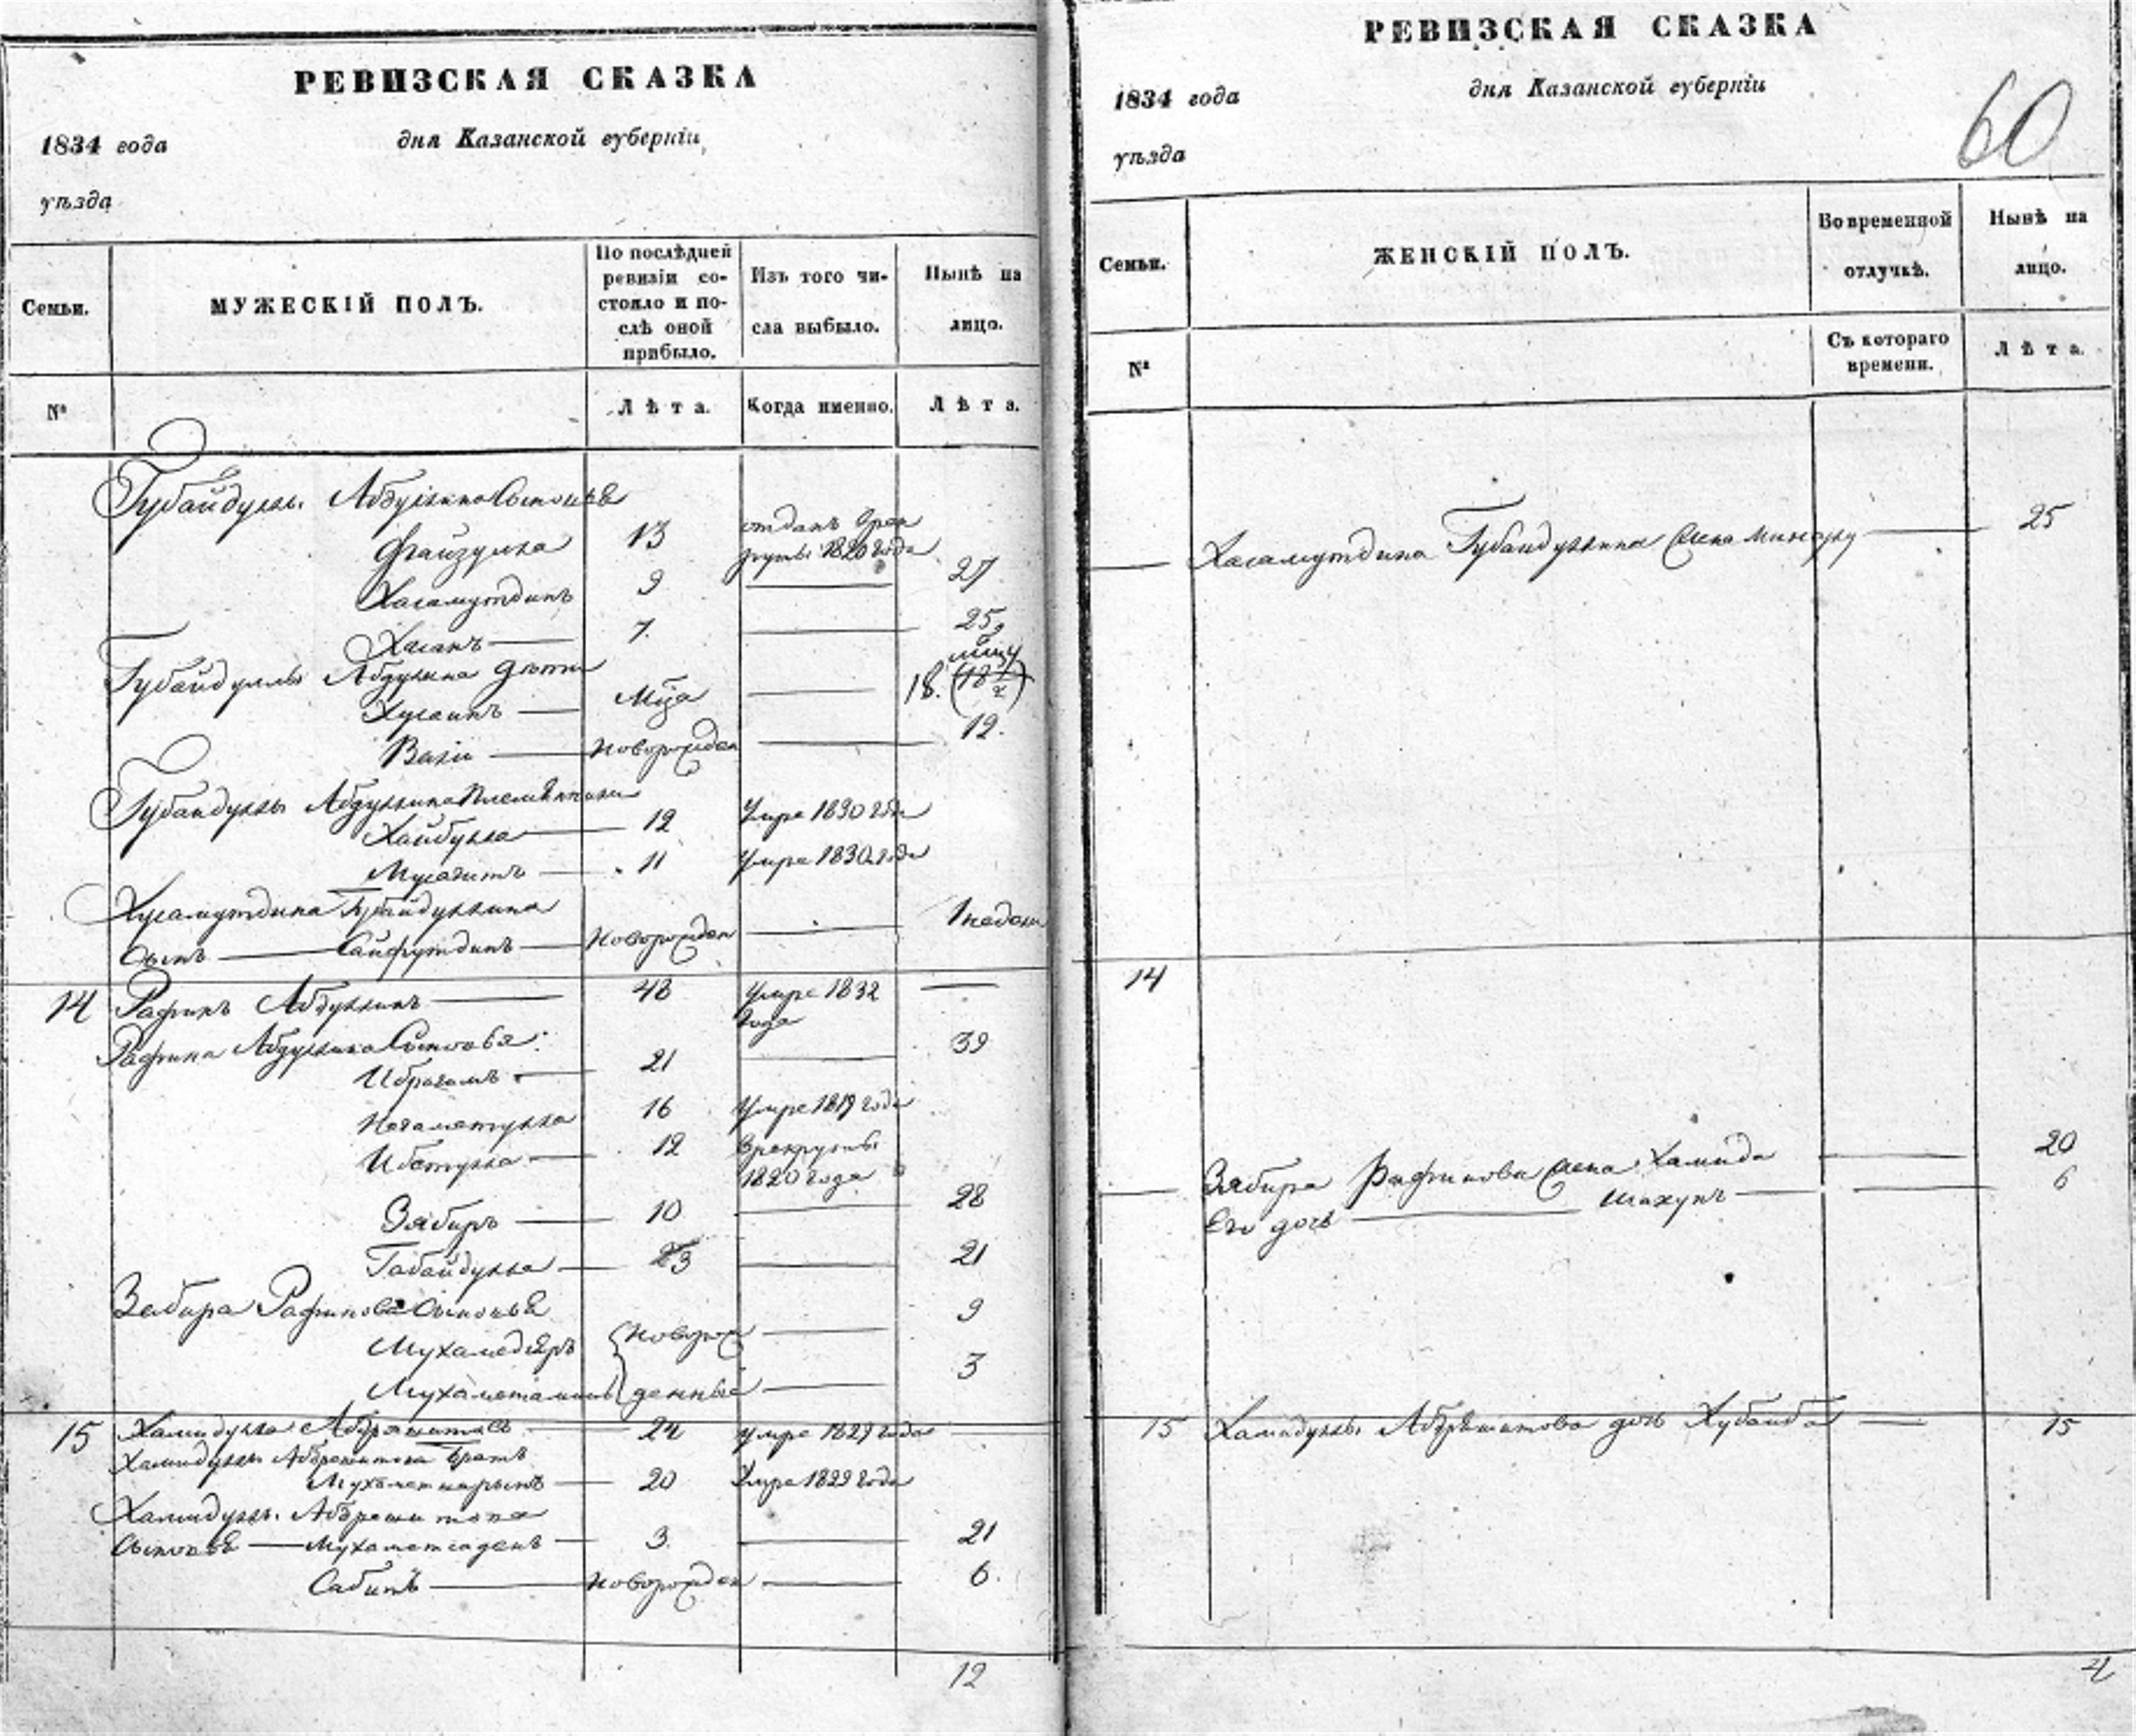 РЕВИЗСКАЯ СКАЗКА
1834 года дня Казанской губерніи
уѣзда
Семьи.
МУЖЕСКІЙ ПОЛЪ.
По послѣдней ревизіи состояло и послѣ оной прибыло.
Изъ того числа выбыло.
Нынѣ на лицо.
№
Лѣта.
Когда именно.
Лѣта.
Губайдуллы Абдулкина Сыновья
Файзулла 13 отданъ врекруты 1820 года
Хасамутдинъ 9 27
Хасанъ 7. 25
Губайдуллы Абдулкина дѣти
Хусаинъ Мца 18. (18 1/2)
Вали Новорожден 12.
Губайдуллы Абдулкина Племянники
Хайбулла 12 Умре 1830 года
11 Умре 1830 года
Хусамутдина Губайдуллина
Сынъ Сайфутдинъ Новорожден 1 недели
14 Рафикъ Абдулкинъ 48 Умре 1832 года
Рафика Абдулкина Сыновья
Ибрагимъ 21 39
Негаметулла 16 Умре 1819 года
12 Врекруты 1820 года
Зябиръ 10 28
Габайдулла 3 21
Зябира Рафикова Сыновья
Мухамедьяръ Новорож 9
денные 3
15 Хамидулла Абдрешитовъ 24 Умре 1829 года
Хамидуллы Абдрешитова братъ
20 Умре 1829 года
Хамидуллы Абдрешитова
Сыновья 3. 21
Сабитъ Новорожден 6.
12
РЕВИЗСКАЯ СКАЗКА
1834 года дня Казанской губерніи
уѣзда
60
Семьи.
ЖЕНСКІЙ ПОЛЪ.
Во временной отлучкѣ.
Нынѣ на лицо.
№
Съ котораго времени.
Лѣта.
Хасамутдина Губайдуллина жена 25
14
Зябира Рафикова жена Хамида 20
Его дочь 6
15 Хамидуллы Абдрешитова дочь Хубайба 15
4